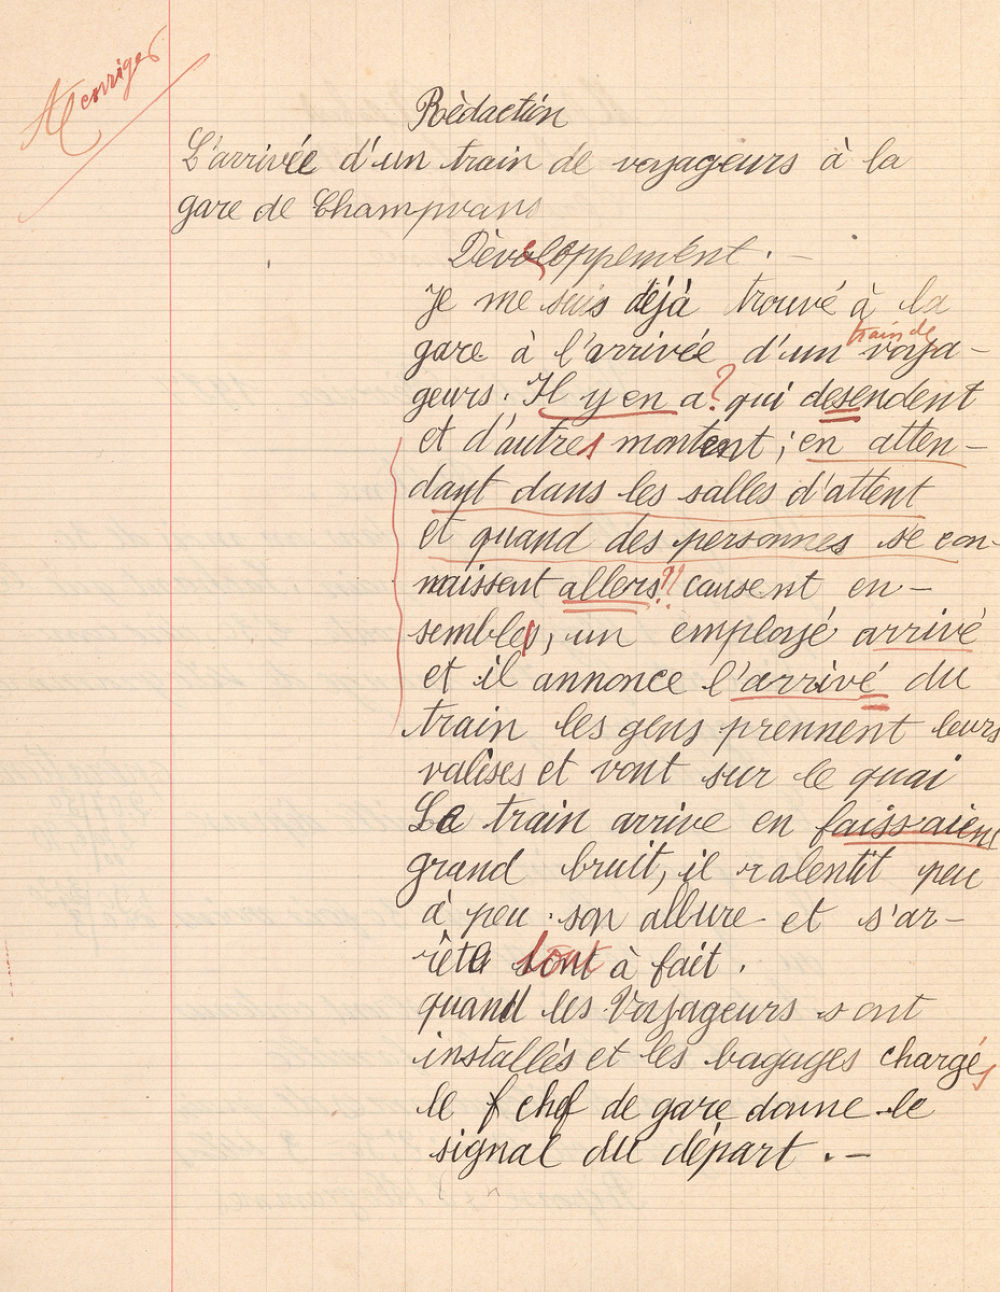 A corriger
Rédaction
L'arrivée d'un train de voyageurs à la
gare de Champvans
Développement.
Je me suis déjà trouvé à la
train de
gare à l'arrivée d'un voya-
geurs. Il y en a ? qui desendent
et d'autres montent ; en atten-
dant dans les salles d'attent
et quand des personnes se con-
naissent allers ?? causent en-
semble, un employé arrivé
et il annonce l'arrivé du
train les gens prennent leurs
valises et vont sur le quai
Le train arrive en faissaient
grand bruit, il ralentit peu
à peu son allure et s'ar-
rête tout à fait.
quand les Voyageurs sont
installés et les bagages chargés
le chef de gare donne le
signal du départ. -